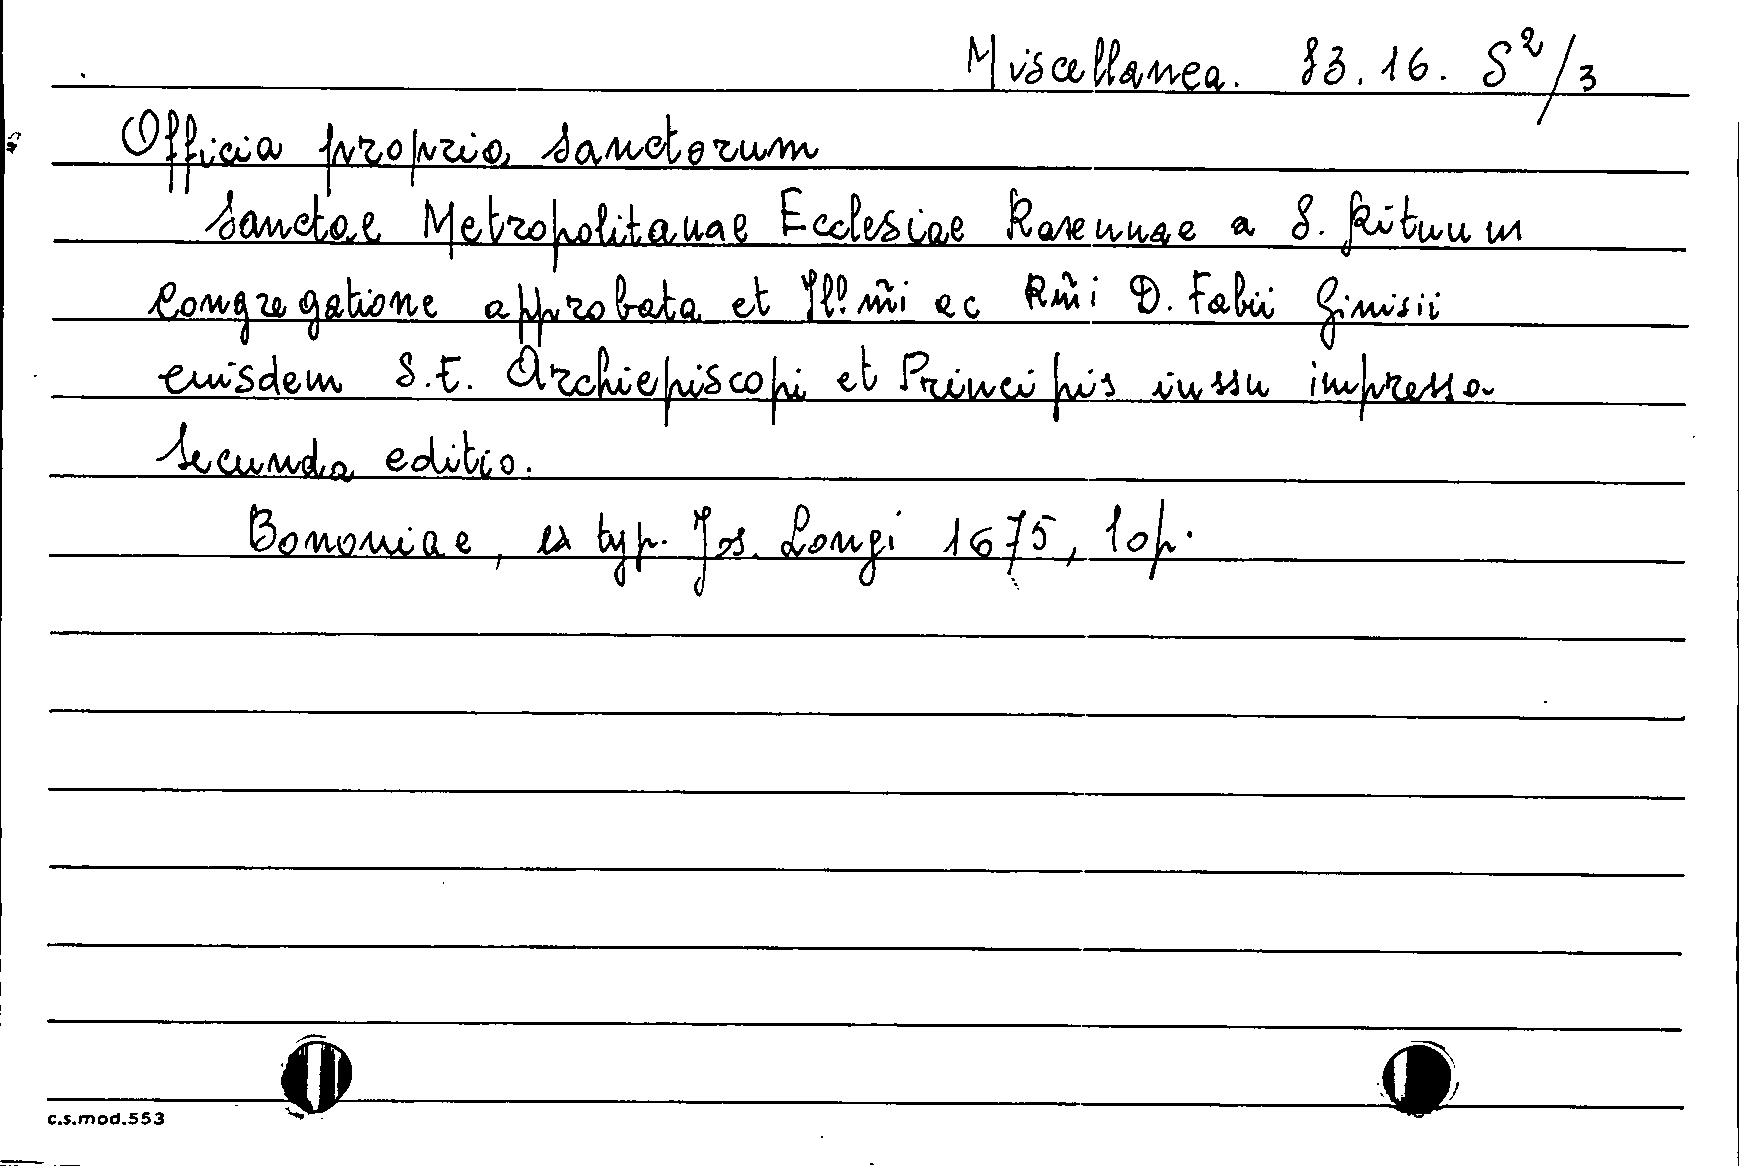 Miscellanea. 83.16. S²/3
Officia propria sanctorum
Sanctae Metropolitanae Ecclesiae Ravennae a S. Rituum
Congregatione approbata et Ill.mi ac Rmi D. Fabii Ginisii
eiusdem S.E. Archiepiscopi et Principis iussu impressa
Secunda editio.
Bononiae, ex typ. Jos. Longi 1675, 10p.
c.s.mod.553